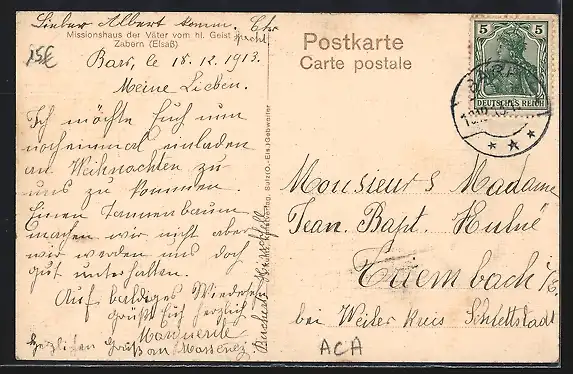 Lieber Albert komm. Chr
Missionshaus der Väter vom hl. Geist
Zabern (Elsaß)
15€
Barr, le 15.12.1913.
Meine Lieben.
Ich möchte Euch nun
nocheinmal einladen
an Weihnachten zu
uns zu kommen.
Einen Tannenbaum
machen wir nicht aber
wir werden uns doch
gut unterhalten.
Auf baldiges Wiederseh
grüßt Euch herzlich
Marguerite
Herzlichen Gruß an
Sulz (O.-Els.) Gebweiler
Postkarte
Carte postale
5 5
DEUTSCHES REICH
BARR
Monsieur & Madame
Jean. Bapt. Hulné
Triembach i/E.
bei Weiler Kreis Schlettstadt
ACA